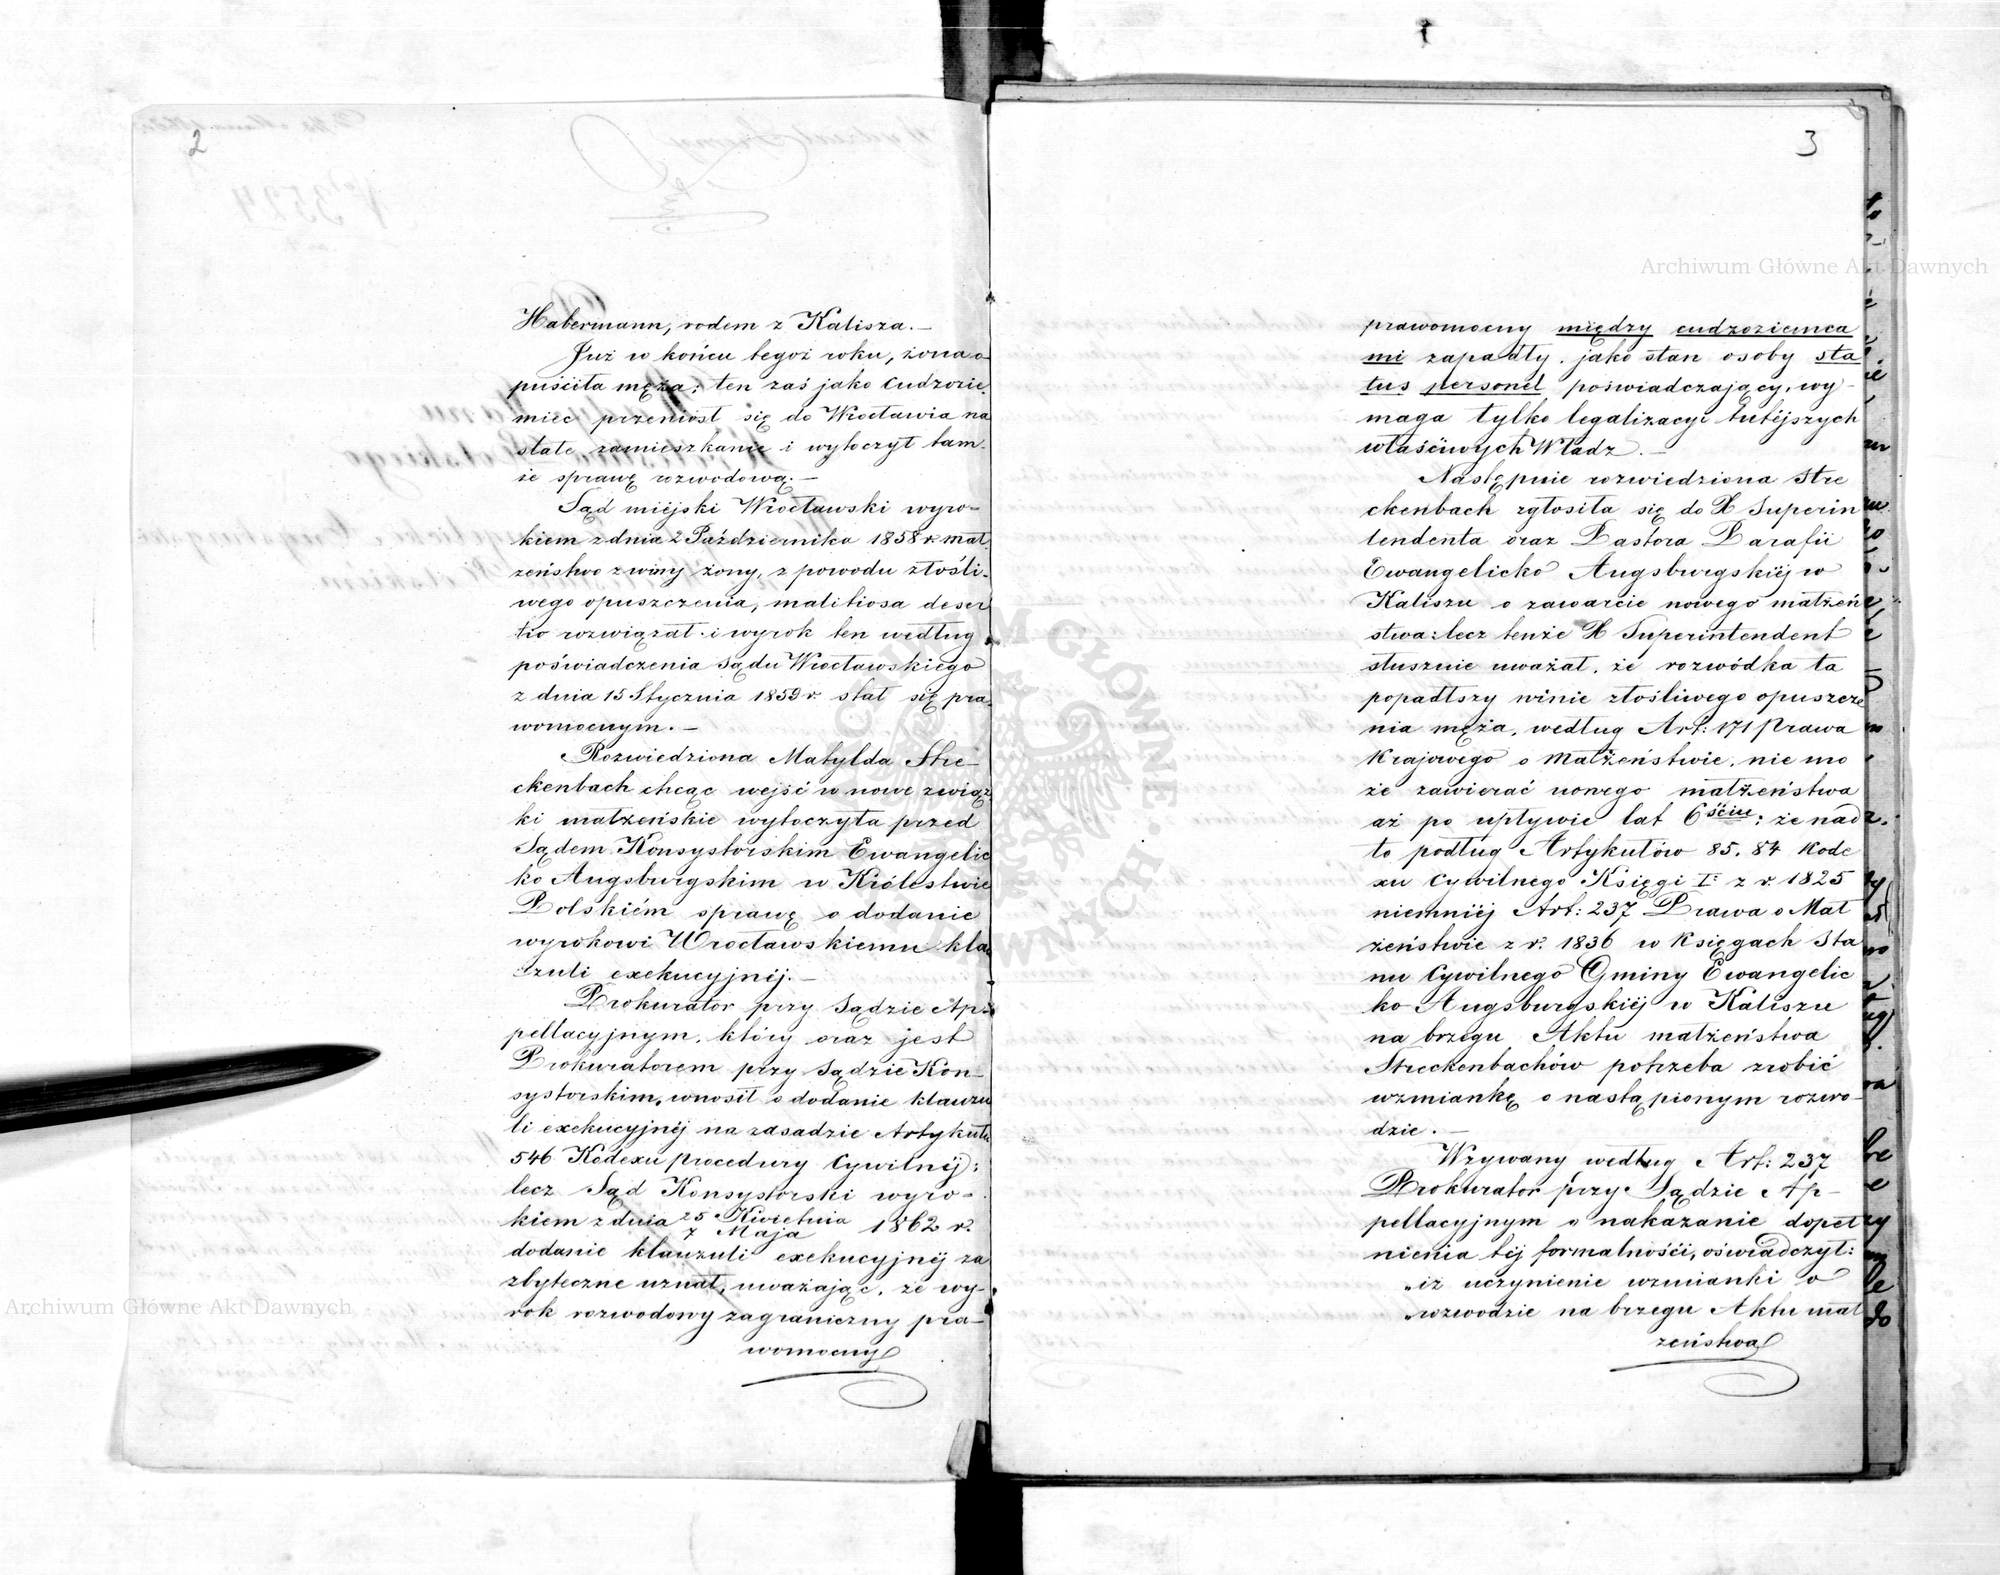 2
Habermann, rodem z Kalisza.—
Już w końcu tegoż roku, żona o-
puściła męża; ten zaś jako Cudzozie-
miec przeniosł się do Wrocławia na
stałe zamieszkanie i wytoczył tam-
że sprawę rozwodową.—
Sąd miéjski Wrocławski wyro-
kiem z dnia 2 Października 1858 r. mał-
żeństwo z winy żony, z powodu złośli-
wego opuszczenia, malitiosa deser
tio rozwiązał. i wyrok ten według
poświadczenia Sądu Wrocławskiego
z dnia 15 Stycznia 1859 r. stał się pra-
womocnym.—
Rozwiedziona Matylda Stre-
ckenbach chcąc wejść w nowe związ-
ki małżeńskie wytoczyła przed
Sądem Konsystorskim Ewangelic
ko Augsburgskim w Królestwie
Polskiém sprawę o dodanie
wyrokowi Wrocławskiemu klau
zuli exekucyjnéj.—
Prokurator przy Sądzie Ap-
pellacyjnym, który oraz jest
Prokuratorem przy Sądzie Kon-
systorskim, wnosił o dodanie klauzu
li exekucyjnéj na zasadzie Artykułu
546 Kodexu procedury Cywilnéj;
lecz Sąd Konsystorski wyro-
kiem z dnia 25 Kwietnia / 7 Maja 1862 r.
dodanie klauzuli exekucyjnéj za
zbyteczne uznał, uważając, że wy-
rok rozwodowy zagraniczny pra-
womocny
3
prawomocny między cudzoziemca
mi zapadły. jako stan osoby sta
tus personel poświadczający, wy-
maga tylko legalizacyi tutéjszych
właściwych Władz.—
Następnie rozwiedziona Stre
ckenbach zgłosiła się do X Superin
tendenta oraz Pastora Parafii
Ewangelicko Augsburgskiéj w
Kaliszu o zawarcie nowego małżeń
stwa: lecz tenże X Superintendent
słusznie uważał, że rozwódka ta
popadłszy winie złośliwego opuszcze
nia męża, według Art: 171 Prawa
Krajowego o Małżeństwie, nie mo
że zawierać nowego małżeństwa
aż po upływie lat 6ściu; że nad
to podług Artykułów 85. 84 Kode
xu Cywilnego Księgi I: z r. 1825
niemniéj Art: 237 Prawa o Mał
żeństwie z r. 1836 w Księgach Sta
nu Cywilnego Gminy Ewangelic
ko Augsburgskiéj w Kaliszu
na brzegu Aktu małżeństwa
Streckenbachów potrzeba zrobić
wzmiankę o nastąpionym rozwo-
dzie.—
Wzywany według Art: 237
Prokurator przy Sądzie Ap-
pellacyjnym o nakazanie dopeł
nienia téj formalności, oświadczył:
„iż uczynienie wzmianki o
„rozwodzie na brzegu Aktu mał
żeństwa
Archiwum Główne Akt Dawnych
Archiwum Główne Akt Dawnych